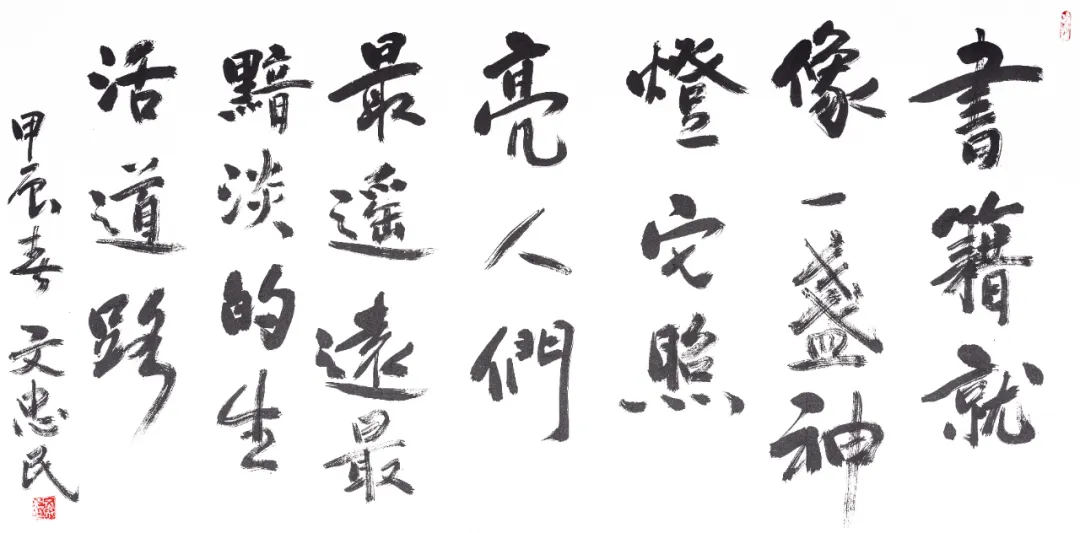 書籍就
像一盏神
燈它照
亮人們
最遥遠最
黯淡的生
活道路
甲辰春 文忠民